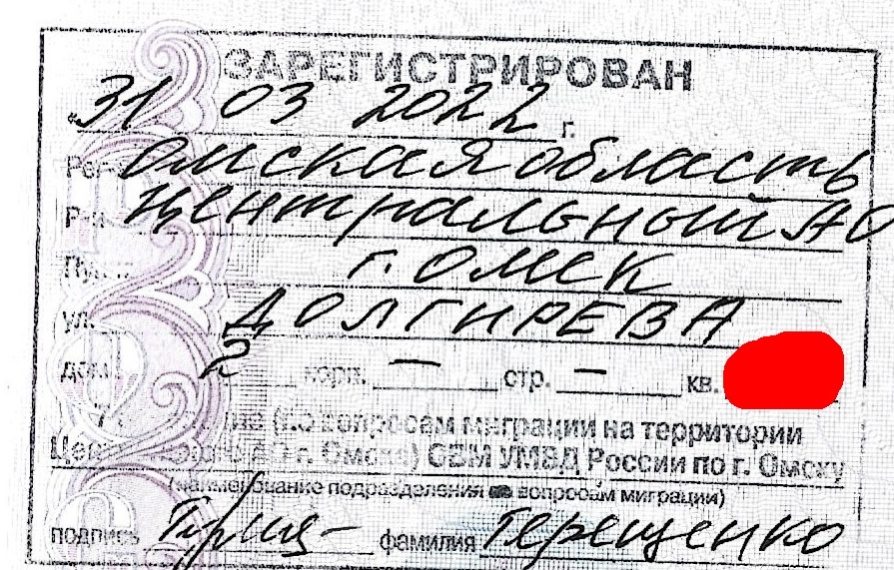 ЗАРЕГИСТРИРОВАН
"31 03 2022 г.
Омская область
Центральный АО
Пункт г. Омск
ул. ДОЛГИРЕВА
дом 2 корп. — стр. — кв.
(по вопросам миграции на территории
Центрального АО г. Омска) ОВМ УМВД России по г. Омску
(наименование подразделения по вопросам миграции)
подпись фамилия Терещенко